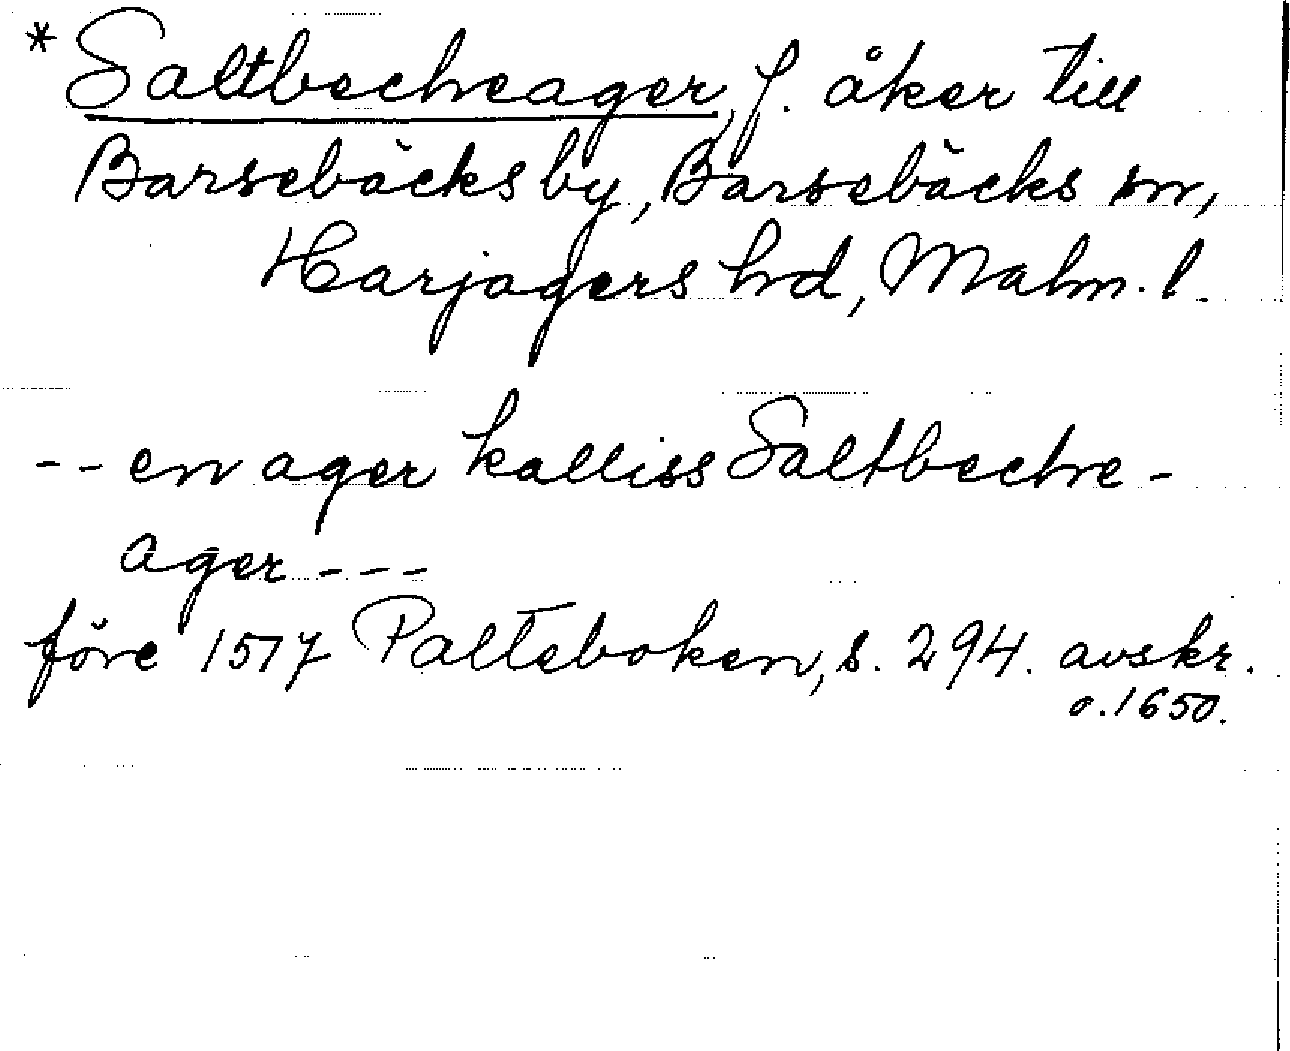 * Saltbecheager, f. åker till
Barsebäcks by, Barsebäcks sn,
Harjagers hd, Malm. l.
-- en ager kalliss Saltbeche-
ager ---
före 1517 Palteboken, s. 294. avskr.
o. 1650.